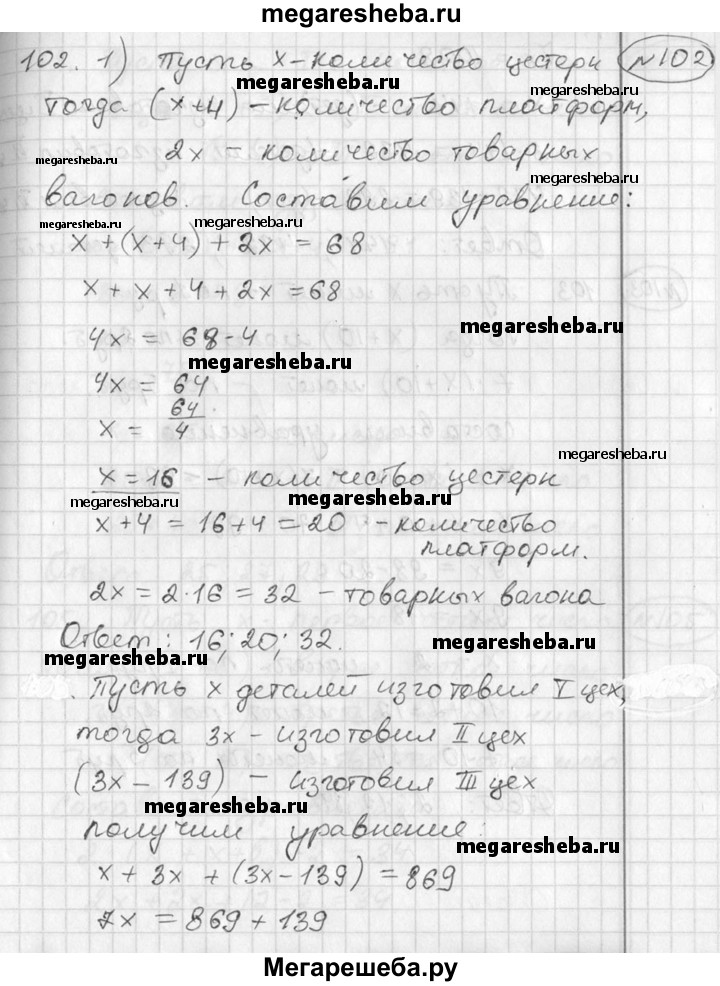 megaresheba.ru
102. 1) Пусть x - количество цестерн №102
megaresheba.ru
тогда (x+4) - количество платформ,
megaresheba.ru
2x - количество товарных
megaresheba.ru
вагонов. Составим уравнение:
megaresheba.ru
megaresheba.ru
x + (x+4) + 2x = 68
x + x + 4 + 2x = 68
megaresheba.ru
4x = 68-4
megaresheba.ru
4x = 64
x = 64/4
megaresheba.ru
x = 16 - количество цестерн
megaresheba.ru
megaresheba.ru
x+4 = 16+4 = 20 - количество
платформ.
2x = 2·16 = 32 - товарных вагона
Ответ: 16; 20; 32.
megaresheba.ru
megaresheba.ru
. Пусть x деталей изготовил I цех,
тогда 3x - изготовил II цех
(3x - 139) - изготовил III цех
megaresheba.ru
получим уравнение:
megaresheba.ru
x + 3x + (3x-139) = 869
7x = 869 + 139
Мегарешеба.ру